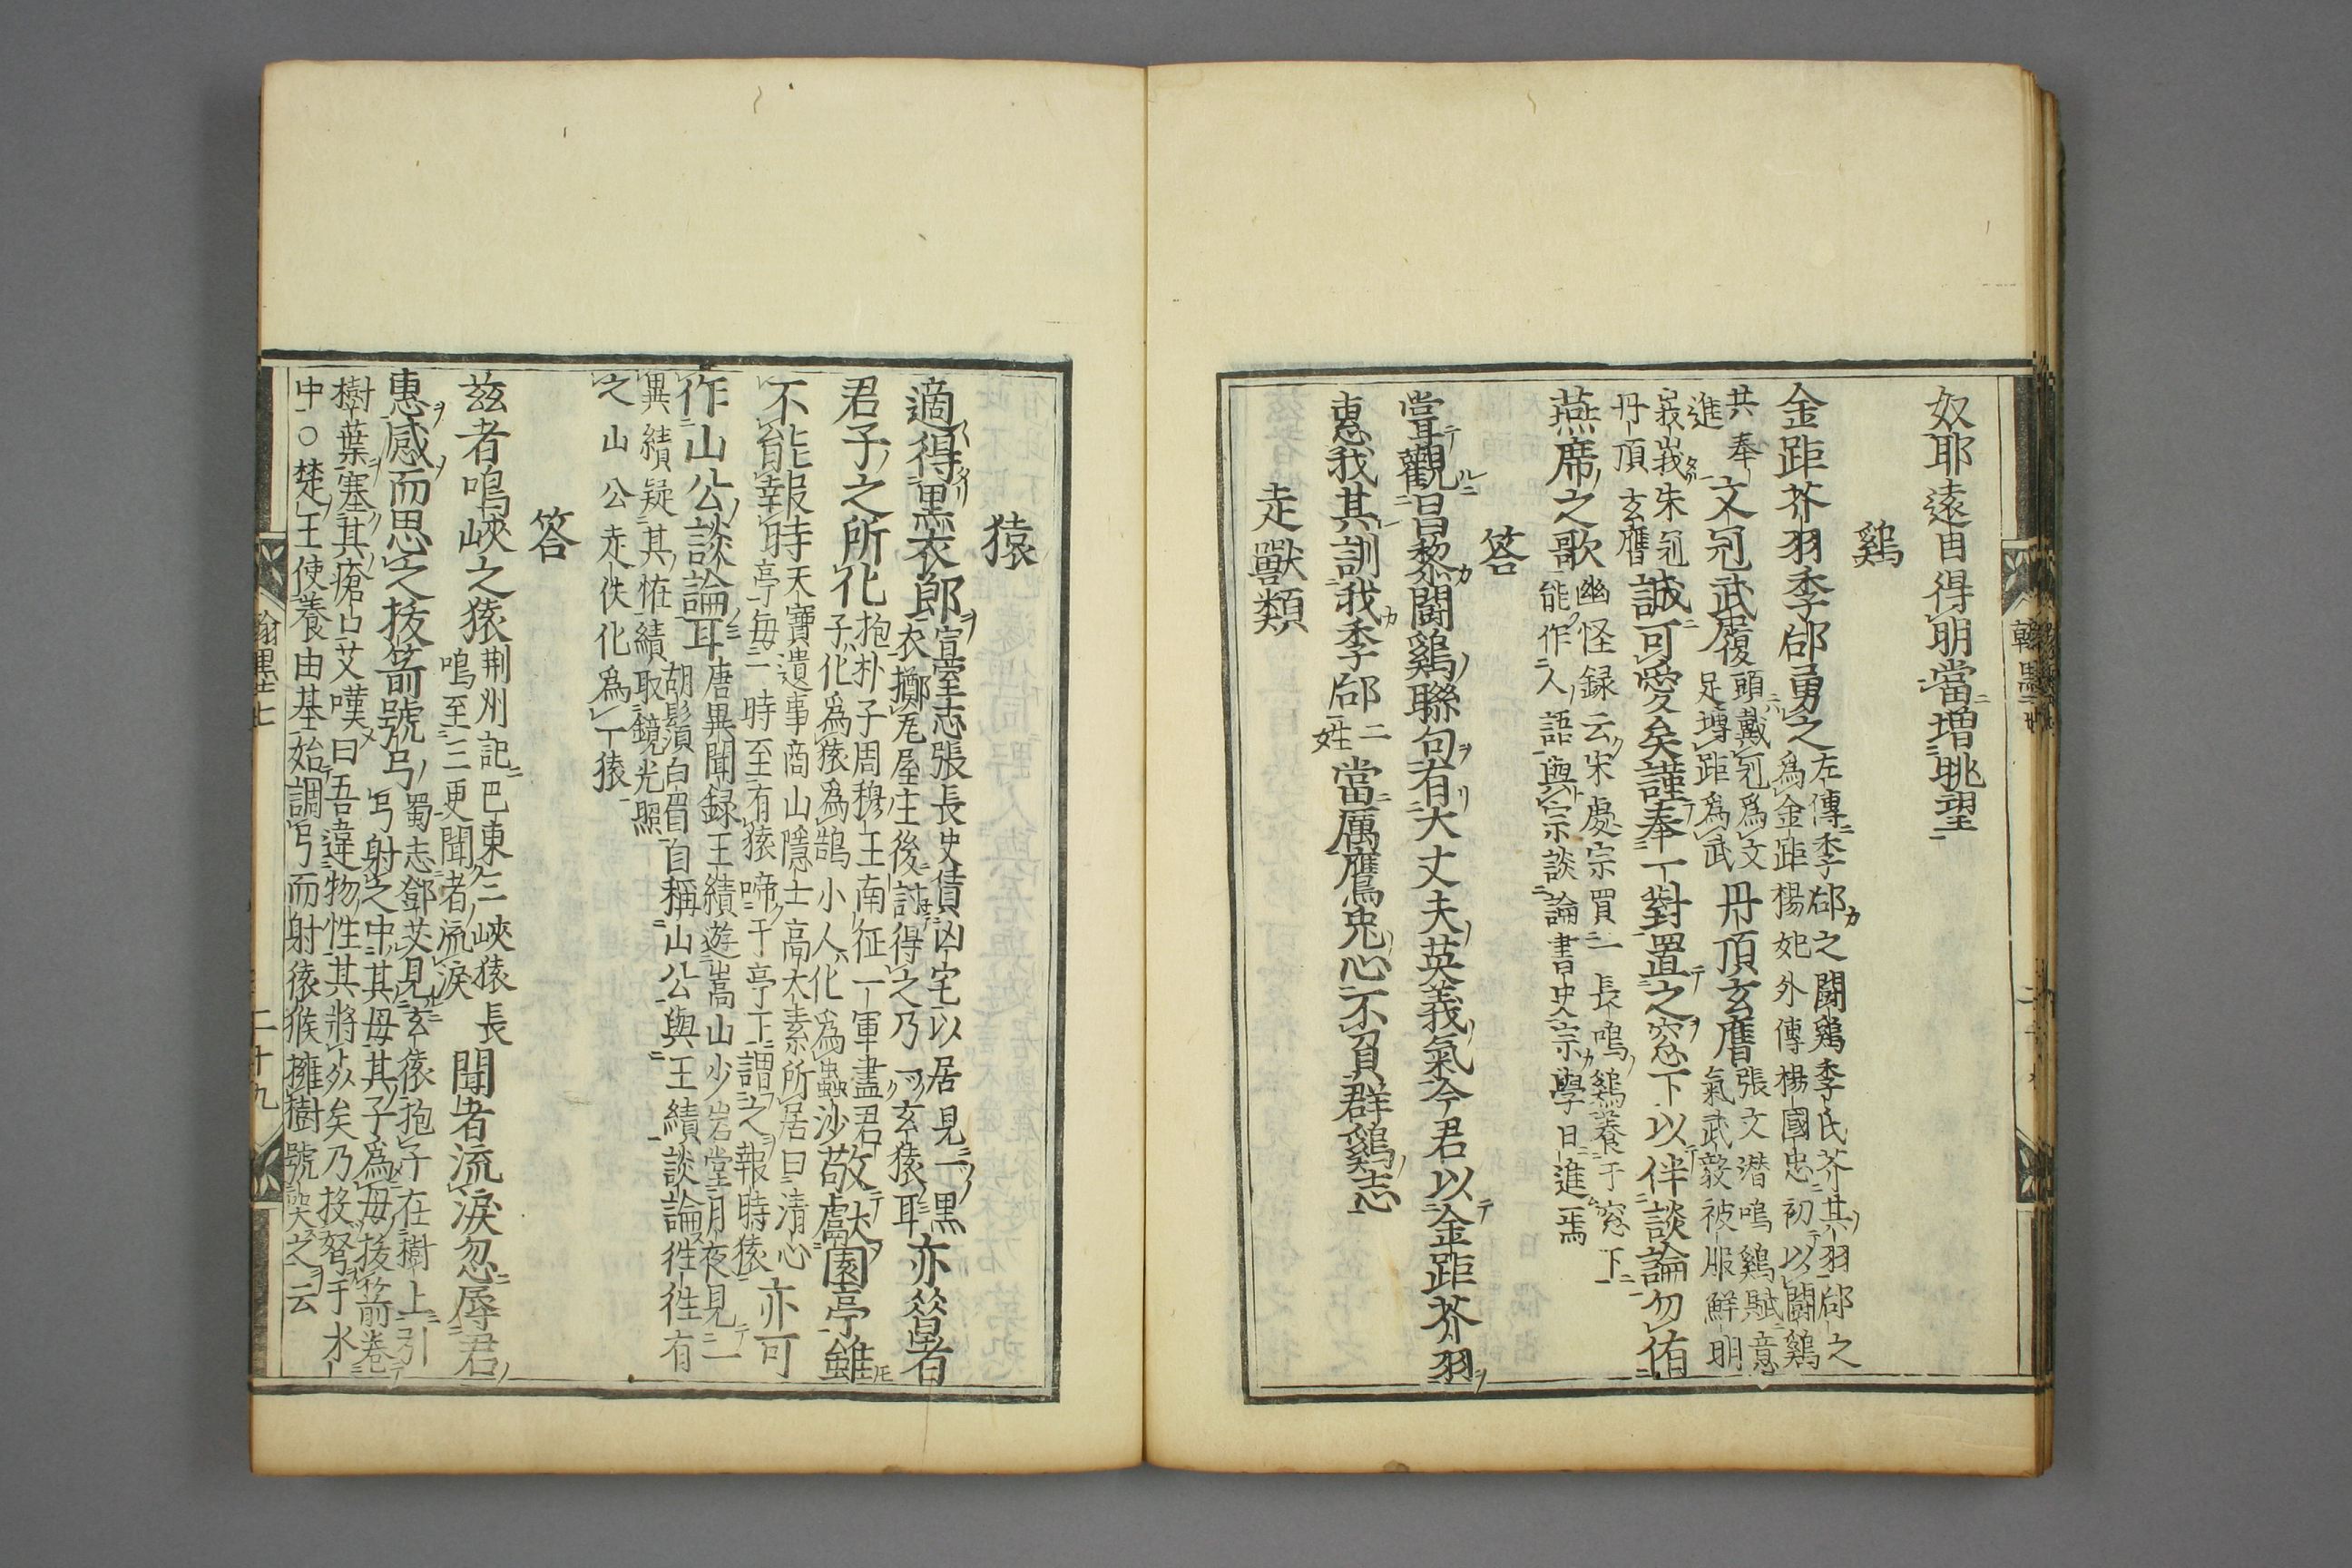 奴耶遠目得明當増眺望
鷄
金距芥羽季郈勇之
左傳季郈之鬪鷄季氏芥其羽郈之
爲金距楊妃外傳楊國忠初以鬪鷄
共奉
進
文冠武履
頭戴冠爲文
足摶距爲武
丹頂玄膺
張文潜鳴鷄賦意
氣武毅被服鮮明
峩峩朱冠
丹頂玄膺
誠可愛矣謹奉一對置之窓下以伴談論勿侑
燕席之歌
幽怪録云宋處宗買一長鳴鷄養于窓下
能作人語與宗談論書史宗學日進焉
答
甞觀昌黎鬪鷄聯句有大丈夫英義氣今君以金距芥羽
惠我其訓我季郈
二
姓
當厲鷹兎心不負群鷄志
走獸類
翰墨
猿
適得黒衣郎
宣室志張長史賃凶宅以居見一黒
衣擲瓦屋庄後討得之乃一玄猿耳
亦昝者
君子之所化
抱朴子周穆王南征一軍盡君
子化爲猿爲鵠小人化爲蟲沙
敬獻園亭雖
不能報時
天寶遺事商山隱士高太素所居曰清心
亭毎一時至有猿啼于亭下謂之報時猿
亦可
作山公談論耳
唐異聞録王績遊嵩山少岩堂月夜見二
胡鬚白眉自稱山公與王績談論徃徃有
異績疑其怪績取鏡光照
之山公走佚化爲一猿
答
茲者鳴峽之猿
荆州記巴東三峽猿長
鳴至三更聞者流涙
聞者流涙忽辱君
惠感而思之拔箭號弓
蜀志鄧艾見玄猿抱子在樹上引
弓射之中其母其子爲母拔箭卷
樹葉塞其瘡口艾嘆曰吾違物性其將死矣乃投弩于水
中○楚王使養由基始調弓而射猿猴擁樹號哭之云
翰墨七
二十九